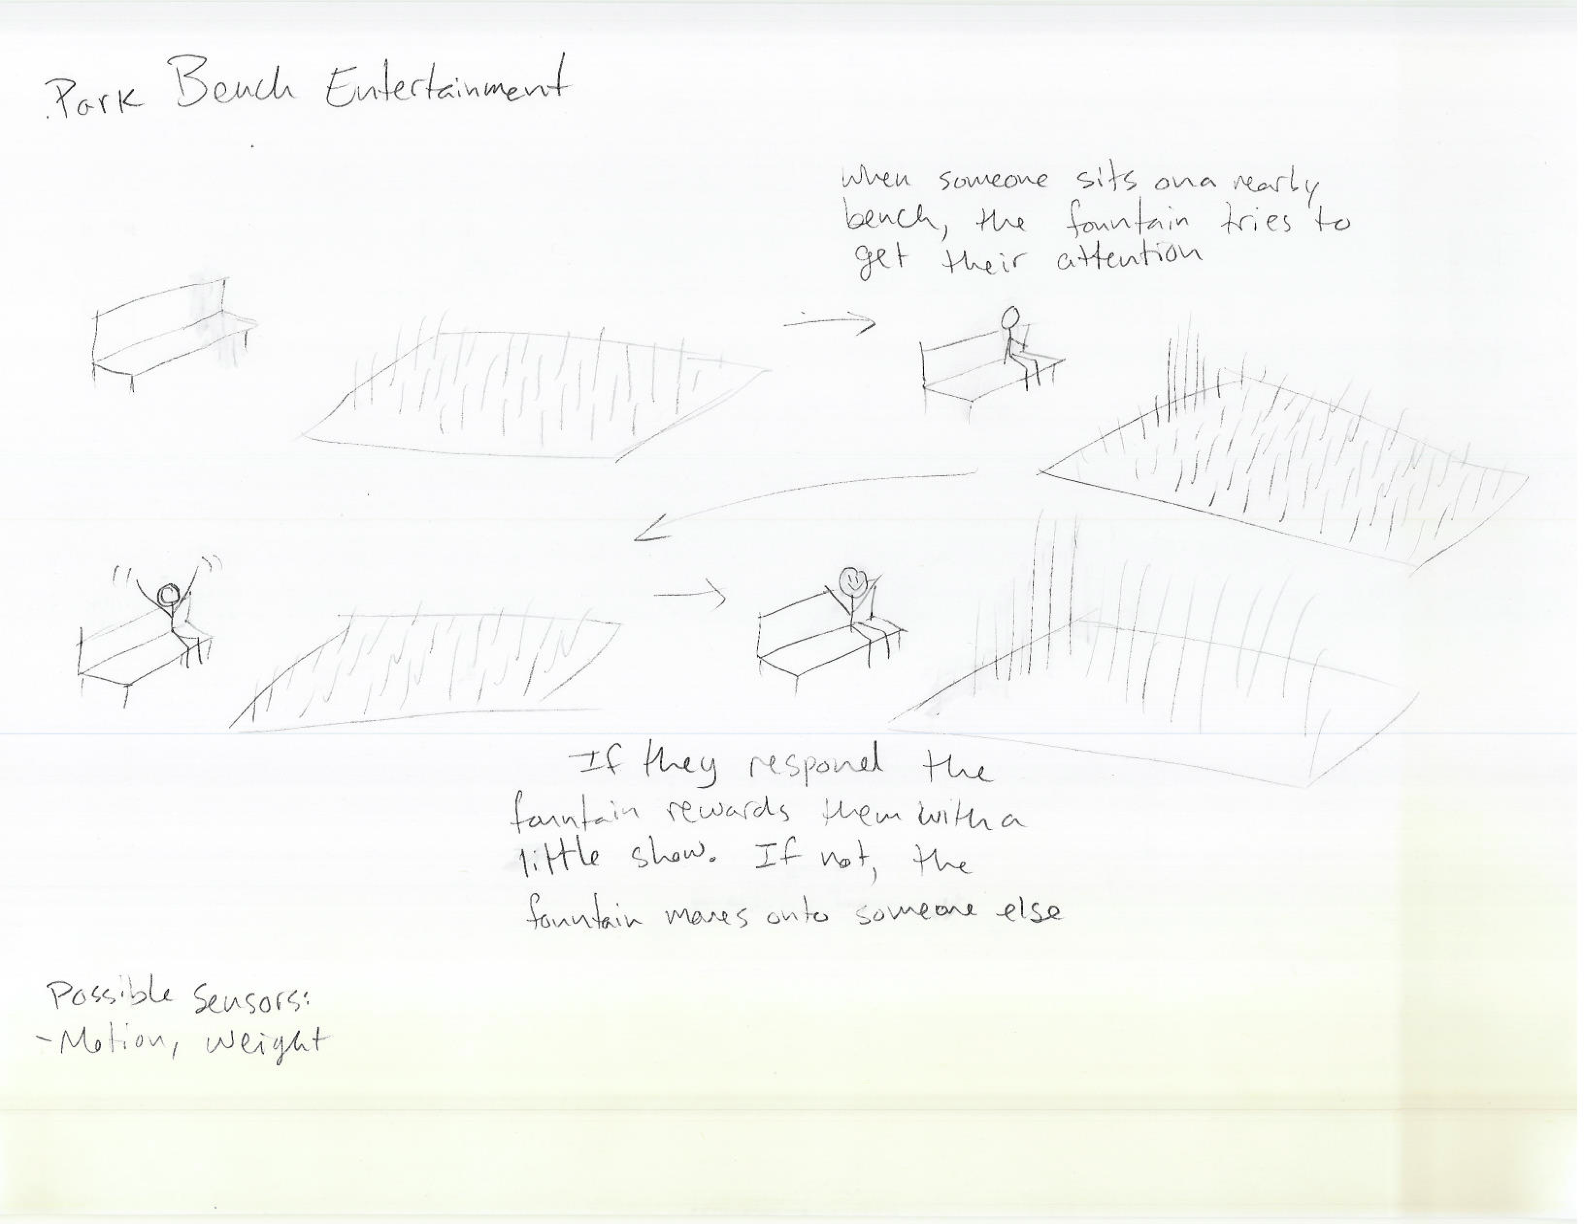 Park Bench Entertainment
when someone sits on a nearby
bench, the fountain tries to
get their attention
If they respond the
fountain rewards them with a
little show. If not, the
fountain moves onto someone else
Possible Sensors:
- Motion, weight